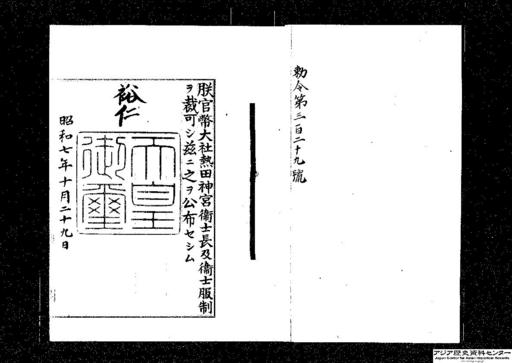 勅令第三百二十九號
朕官幣大社熱田神宮衞士長及衞士服制
ヲ裁可シ茲ニ之ヲ公布セシム
裕仁
天皇御璽
昭和七年十月二十九日
アジア歴史資料センター
Japan Center for Asian Historical Records